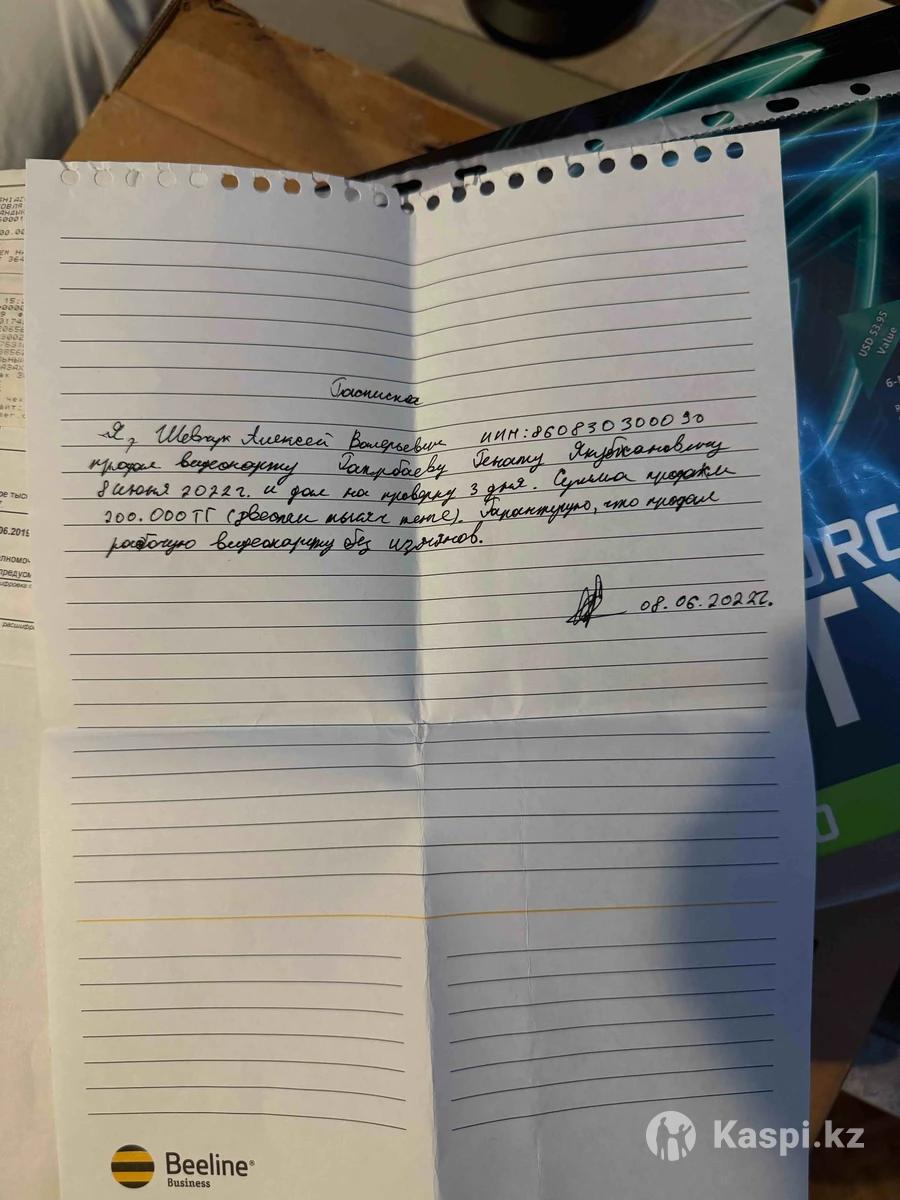 Расписка
Я, Шевчук Алексей Валерьевич ИИН: 860830300090
продал видеокарту Гапурбаеву Генату Якубжановичу
8 июня 2022г. и дал на проверку 3 дня. Сумма продажи
200.000ТГ (двести тысяч тенге). Гарантирую, что продал
рабочую видеокарту без изъянов.
08.06.2022г.
USD 53.95
Value
Beeline®
Business
Kaspi.kz